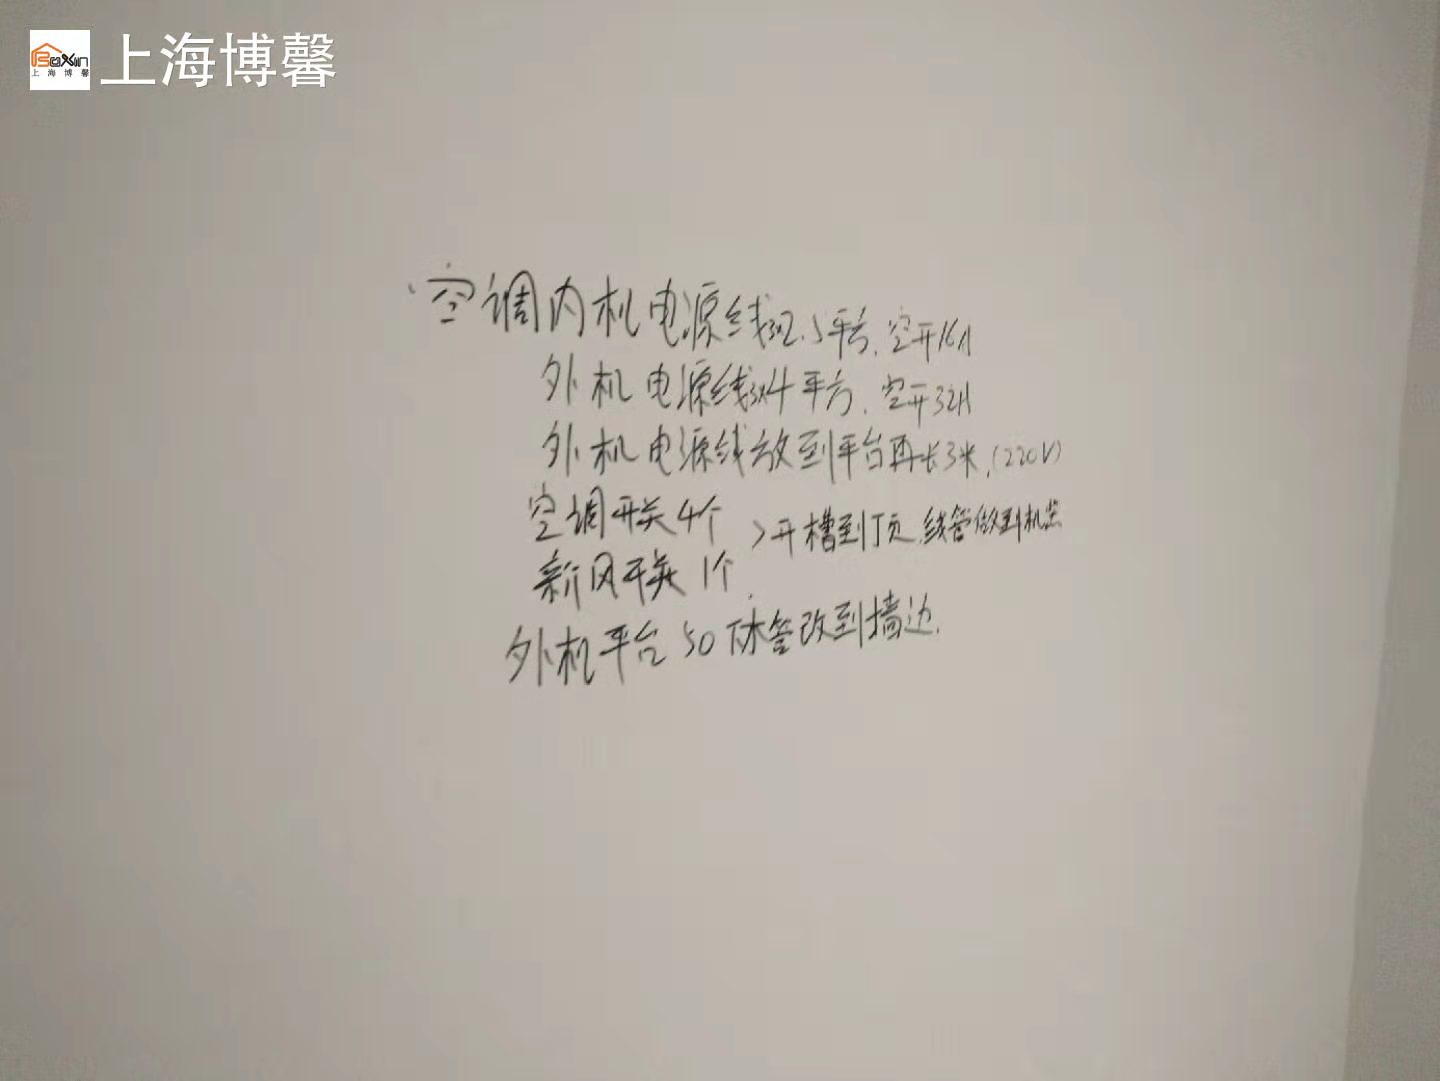 Boxin
上海博馨
上海博馨
空调内机电源线3x2.5平方.空开16A
外机电源线3x4平方.空开32A
外机电源线放到平台再长3米.(220V)
空调开关4个
>开槽到顶.线管做到机器
新风开关1个
外机平台50下水管改到墙边.